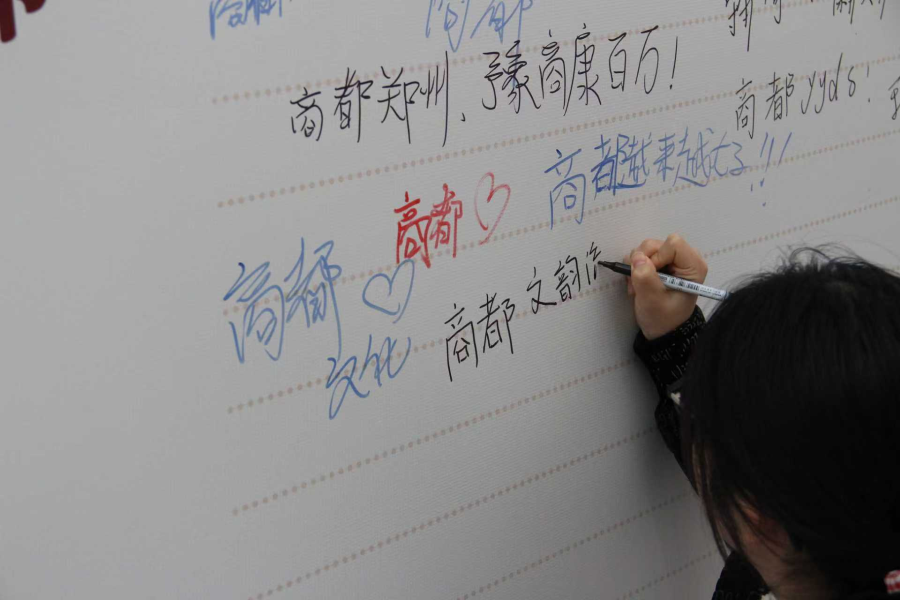 商都
商都郑州，豫商康百万！
商都yyds！
商都越来越好!!!
商都
商都
文化
商都文韵